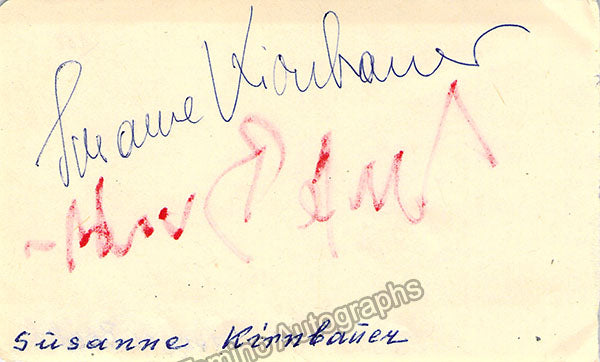 Susanne Kirnbauer
Susanne Kirnbauer
Tamino Autographs